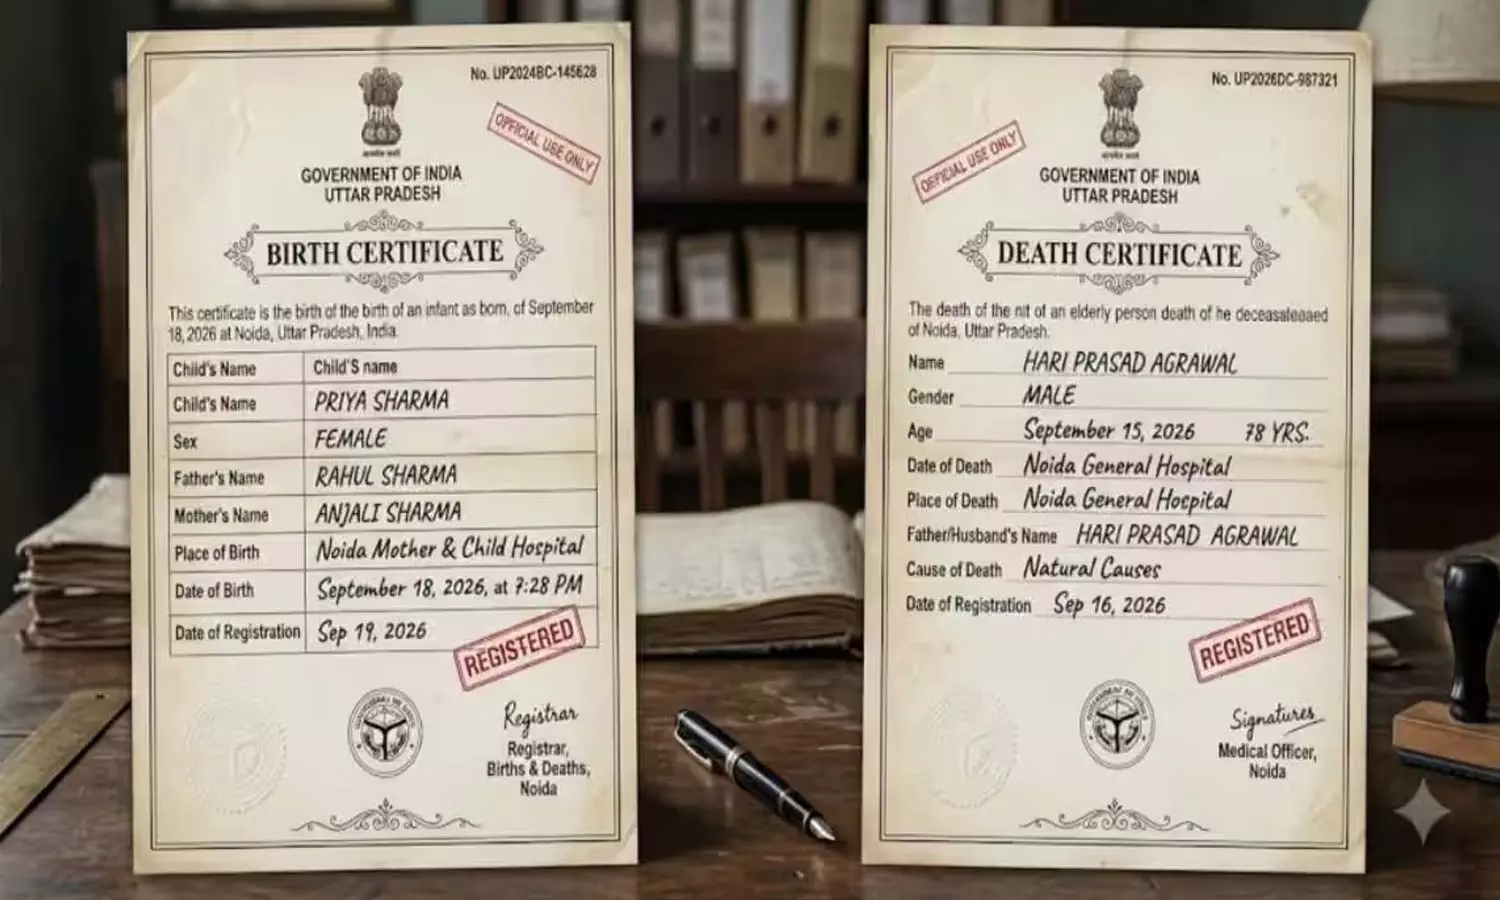 No. UP2024BC-145628
OFFICIAL USE ONLY
GOVERNMENT OF INDIA
UTTAR PRADESH
BIRTH CERTIFICATE
This certificate is the birth of the birth of an infant as born, of September
18, 2026 at Noida, Uttar Pradesh, India.
Child's Name Child'S name
Child's Name PRIYA SHARMA
Sex FEMALE
Father's Name RAHUL SHARMA
Mother's Name ANJALI SHARMA
Place of Birth Noida Mother & Child Hospital
Date of Birth September 18, 2026, at 7:28 PM
Date of Registration Sep 19, 2026
REGISTERED
Registrar
Registrar,
Births & Deaths,
Noida
No. UP2026DC-987321
OFFICIAL USE ONLY
GOVERNMENT OF INDIA
UTTAR PRADESH
DEATH CERTIFICATE
The death of the nit of an elderly person death of he deceasaleeaed
of Noida, Uttar Pradesh.
Name HARI PRASAD AGRAWAL
Gender MALE
Age September 15, 2026 78 YRS.
Date of Death Noida General Hospital
Place of Death Noida General Hospital
Father/Husband's Name HARI PRASAD AGRAWAL
Cause of Death Natural Causes
Date of Registration Sep 16, 2026
REGISTERED
Signatures
Medical Officer,
Noida